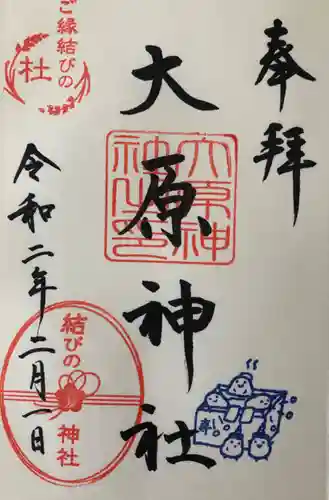 奉拝
大原神社
大原神社之印
ご縁結びの
社
令和二年二月一日
結びの
神社